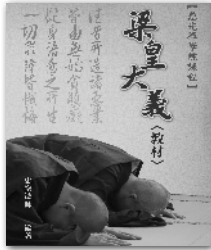 梁皇大義
〈教材〉
往昔所造諸惡業
皆由無始貪瞋癡
從身語意之所生
一切我今皆懺悔